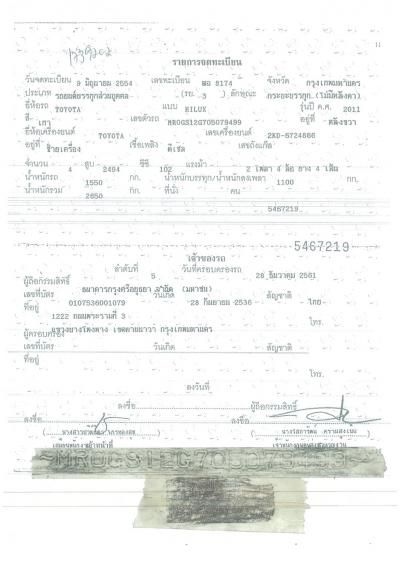 11
รายการจดทะเบียน
วันจดทะเบียน 9 มิถุนายน 2554 เลขทะเบียน 8174 จังหวัด กรุงเทพมหานคร
ประเภท รถยนต์บรรทุกส่วนบุคคล (รย. 3) ลักษณะ กระบะบรรทุก (ไม่มีหลังคา)
ยี่ห้อรถ TOYOTA แบบ HILUX รุ่นปี ค.ศ. 2011
สี เทา เลขตัวรถ MR0GS12G705079499 อยู่ที่ ตลิ่งชวา
ยี่ห้อเครื่องยนต์ TOYOTA เลขเครื่องยนต์ 2KD-5724866
อยู่ที่ ซ้ายเครื่อง เชื้อเพลิง ดีเซล เลขถังแก๊ส
จำนวน 4 สูบ 2494 ซีซี 102 แรงม้า 2 เพลา 4 ล้อ ยาง 4 เส้น
น้ำหนักรถ 1550 กก. น้ำหนักบรรทุก/น้ำหนักลงเพลา 1100 กก.
น้ำหนักรวม 2650 กก. ที่นั่ง คน
5467219
5467219
เจ้าของรถ
ลำดับที่ 5 วันที่ครอบครองรถ 28 ธันวาคม 2561
ผู้ถือกรรมสิทธิ์ ธนาคารกรุงศรีอยุธยา จำกัด (มหาชน)
เลขที่บัตร 0107536001079 วันเกิด 28 กันยายน 2536 สัญชาติ ไทย
ที่อยู่ 1222 ถนนพระรามที่ 3 โทร.
แขวงบางโพงพาง เขตยานนาวา กรุงเทพมหานคร
ผู้ครอบครอง
เลขที่บัตร วันเกิด สัญชาติ
ที่อยู่
โทร.
ลงวันที่
ลงชื่อ ผู้ถือกรรมสิทธิ์
ลงชื่อ ลงชื่อ